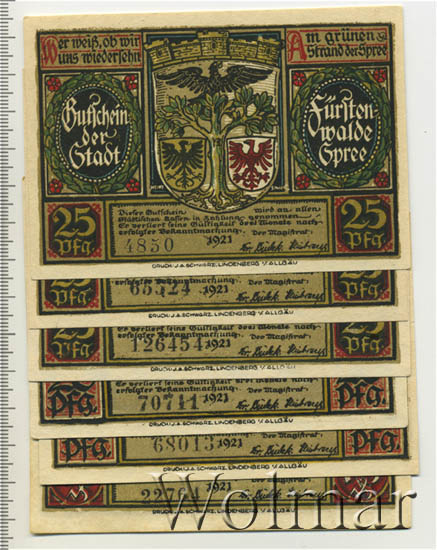 Wer weiß, ob wir
uns wiedersehn
Am grünen
Strand der Spree
Gutschein
der
Stadt
Fürsten-
walde
Spree
25
Pfg.
Dieser Gutschein wird an allen
Städtischen Kassen in Zahlung genommen
Er verliert seine Gültigkeit drei Monate nach
erfolgter Bekanntmachung. Der Magistrat.
4850 1921
25
Pfg.
DRUCK: J.A. SCHWARZ, LINDENBERG I/ALLGÄU
erfolgter Bekanntmachung. Der Magistrat.
1921
Pfg.
Pfg.
DRUCK: J.A. SCHWARZ, LINDENBERG I/ALLGÄU
25
Pfg.
Er verliert seine Gültigkeit drei Monate nach
erfolgter Bekanntmachung. Der Magistrat.
126454 1921
25
Pfg.
DRUCK: J.A. SCHWARZ, LINDENBERG I/ALLGÄU
Pfg.
Er verliert seine Gültigkeit drei Monate nach
erfolgter Bekanntmachung. Der Magistrat.
70711 1921
Pfg.
DRUCK: J.A. SCHWARZ, LINDENBERG I/ALLGÄU
Pfg.
erfolgter Bekanntmachung. Der Magistrat.
68013 1921
Pfg.
DRUCK: J.A. SCHWARZ, LINDENBERG I/ALLGÄU
erfolgter Bekanntmachung. Der Magistrat.
1921
Wolmar